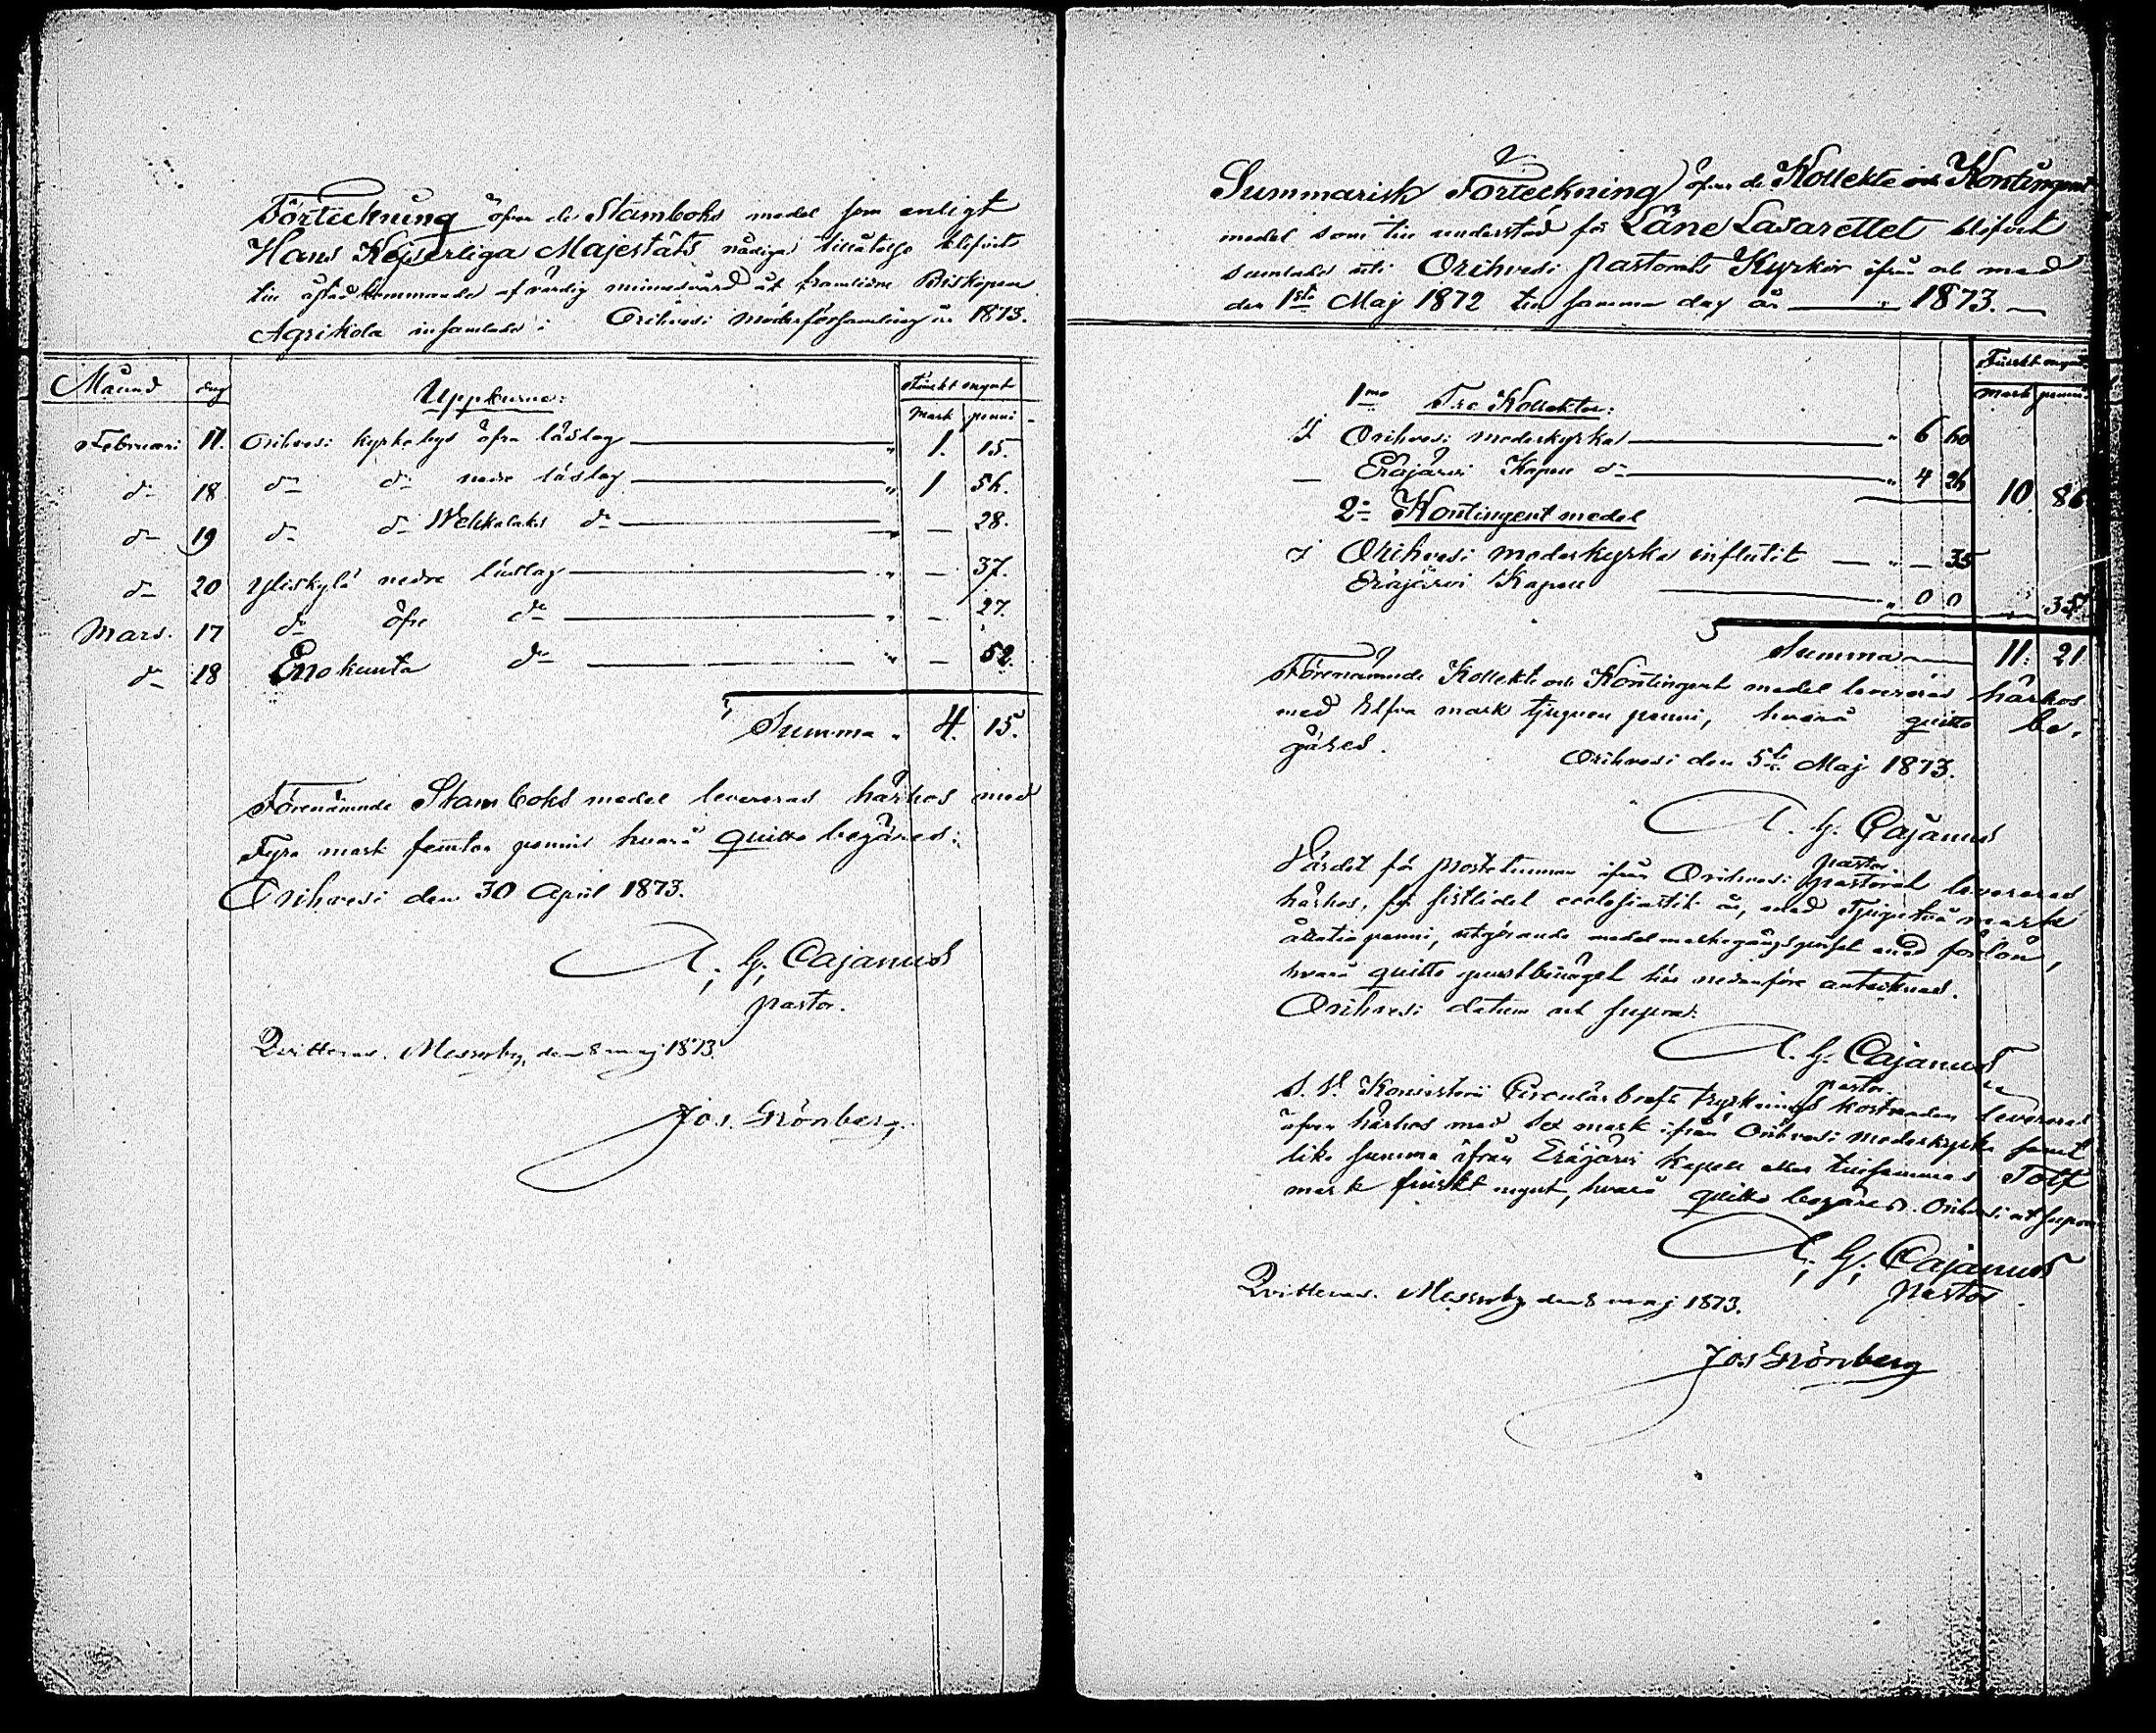 Förteckning öfver de Stamboks medel som enligt
Hans Kejserliga Majestäts nådiga tillåtelse blifvit
till åstadkommande af värdig minnesvård åt framlidne Biskopen
Agrikola insamlade i Orihvesi moderförsamling år 1873.
Månad dag Uppburne: Finskt mynt
Mark penni
Februari 17. Orihvesi kyrkobys öfra läslag " 1. 15.
do 18 do do nedre läslag " 1 56.
do 19 do do Wehkalaks do " — 28.
do 20 Yliskylä nedre läslag " — 37.
Mars. 17 do öfre do " — 27.
do 18 Enokunta do " — 52.
Summa " 4. 15.
Förenämnde Stamboks medel levereras härhos med
Fyra mark femton pennis hvarå quitto begäres:
Orihvesi den 30 April 1873.
A. G. Cajanus
pastor.
Qvitteras. Messuby, den 8 maj 1873.
Jos. Grönberg.
Summarisk Förteckning öfver de Kollekte och Kontingent
medel som till understöd för Läne Lasarettet blifvit
samlade uti Orihvesi Pastorats Kyrkor ifrån och med
den 1sta Maj 1872 till samma dag år — " 1873. —
Finskt mynt
mark penni
1mo Fre Kollekter:
I Orihvesi moderkyrka " 6 60
— Eräjärvi Kapell do " 4 26 10. 86
2o Kontingent medel
I Orihvesi moderkyrka influtit — " — 35
Eräjärvi Kapell " 0 0 35.
Summa 11. 21
Förenämnde Kollekte och Kontingent medel levereras härhos
med Elfva mark tjuguen penni, hvarå quitto be-
gäres.
Orihvesi den 5te Maj 1873.
A. G. Cajanus
pastor.
Värdet för prostetunnan ifrån Orihvesi pastorat levereras
härhos, för sistlidet ecclesiastik år, med Tjugutvå mark
åttatio penni, utgörande medelmarkegångspriset med forlön,
hvarå quitto gunstbenäget här nedanföre antecknas.
Orihvesi datum ut supra.
A. G. Cajanus
pastor
S. V. Konsistorii Circulärbrefs tryknings kostnaden levereras
äfven härhos med Sex mark ifrån Orihvesi moderkyrka samt
lika summa ifrån Eräjärvi Kapell eller tillsammans Tolf
mark finskt mynt, hvarå quitto begäres. Orihvesi ut supra
A. G. Cajanus
pastor
Qvitteras. Messuby den 8 maj 1873.
Jos Grönberg